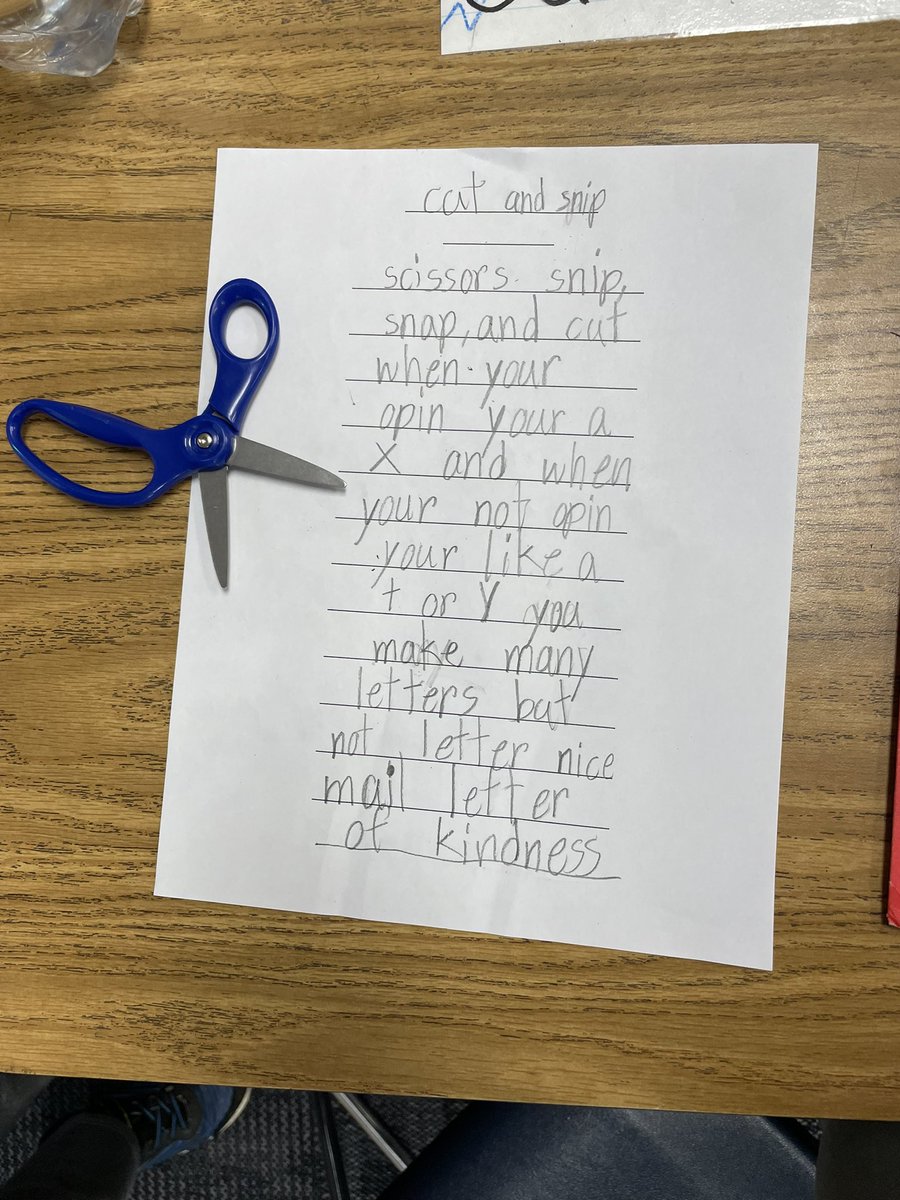 cut and snip
scissors snip,
snap, and cut
when your
opin your a
X and when
your not opin
your like a
t or Y you
make many
letters but
not letter nice
mail letter
of kindness